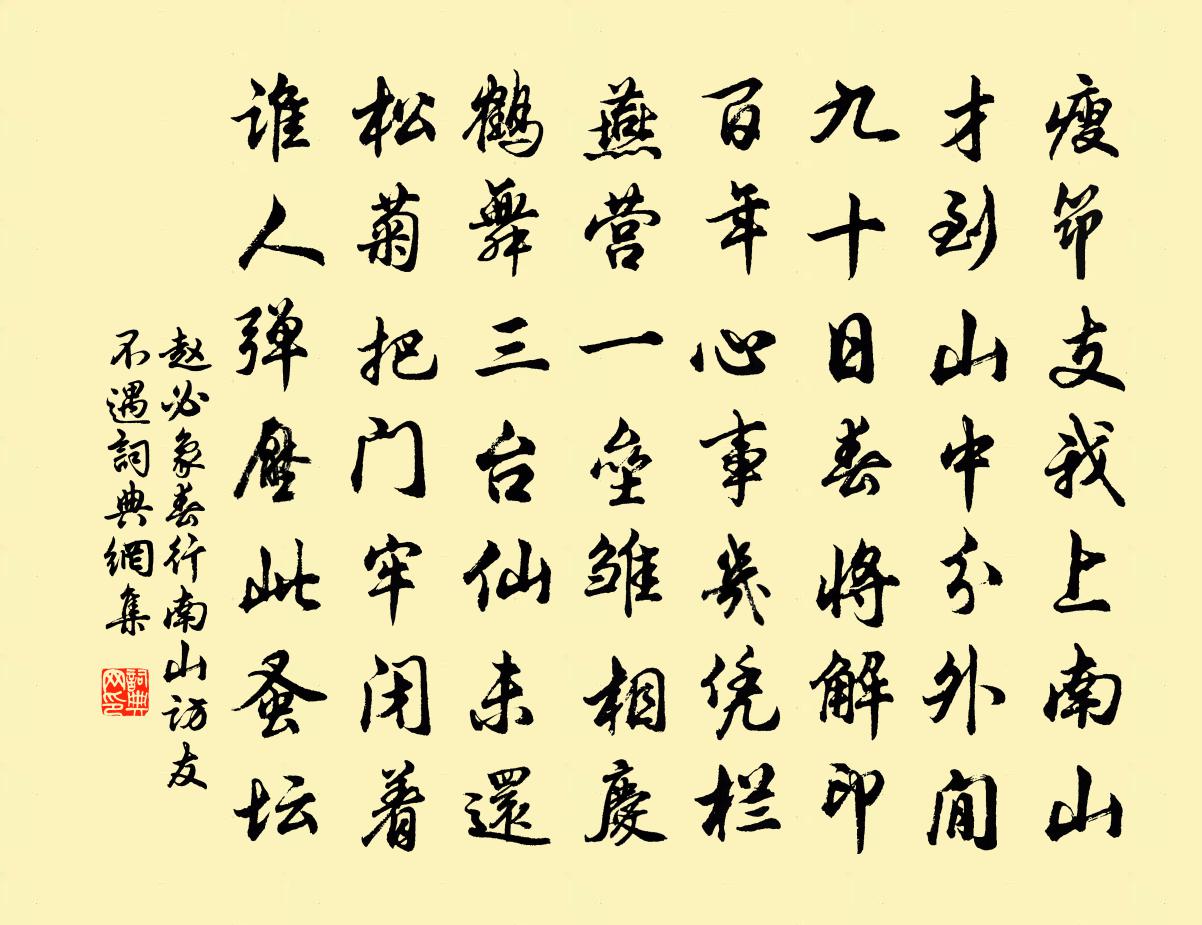 瘦筇支我上南山
才到山中分外閒
九十日春将解印
百年心事幾凭栏
燕营一垒雏相慶
鹤舞三台仙未還
松菊把门牢闭着
谁人弹壓此蚤坛
赵必象春行南山访友
不遇詞典網集
詞典网印